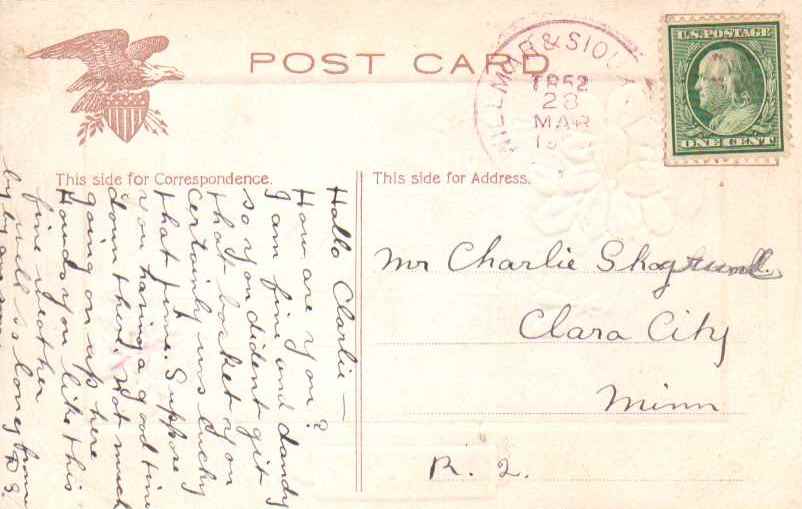 POST CARD
WILLMAR & SIOU
TR 52
28
MAR
U.S. POSTAGE
ONE CENT
This side for Correspondence.
This side for Address.
Hallo Clarlie —
How are you?
I am fine and dandy
so you dident git
that basket you
certainly was lucky
that time. Suppose
you having a good time
down there. Not much
going on up here
How do you like this
fine weather
well so long from
by by
Mr Charlie Skoglund
Clara City
Minn
R. 2.